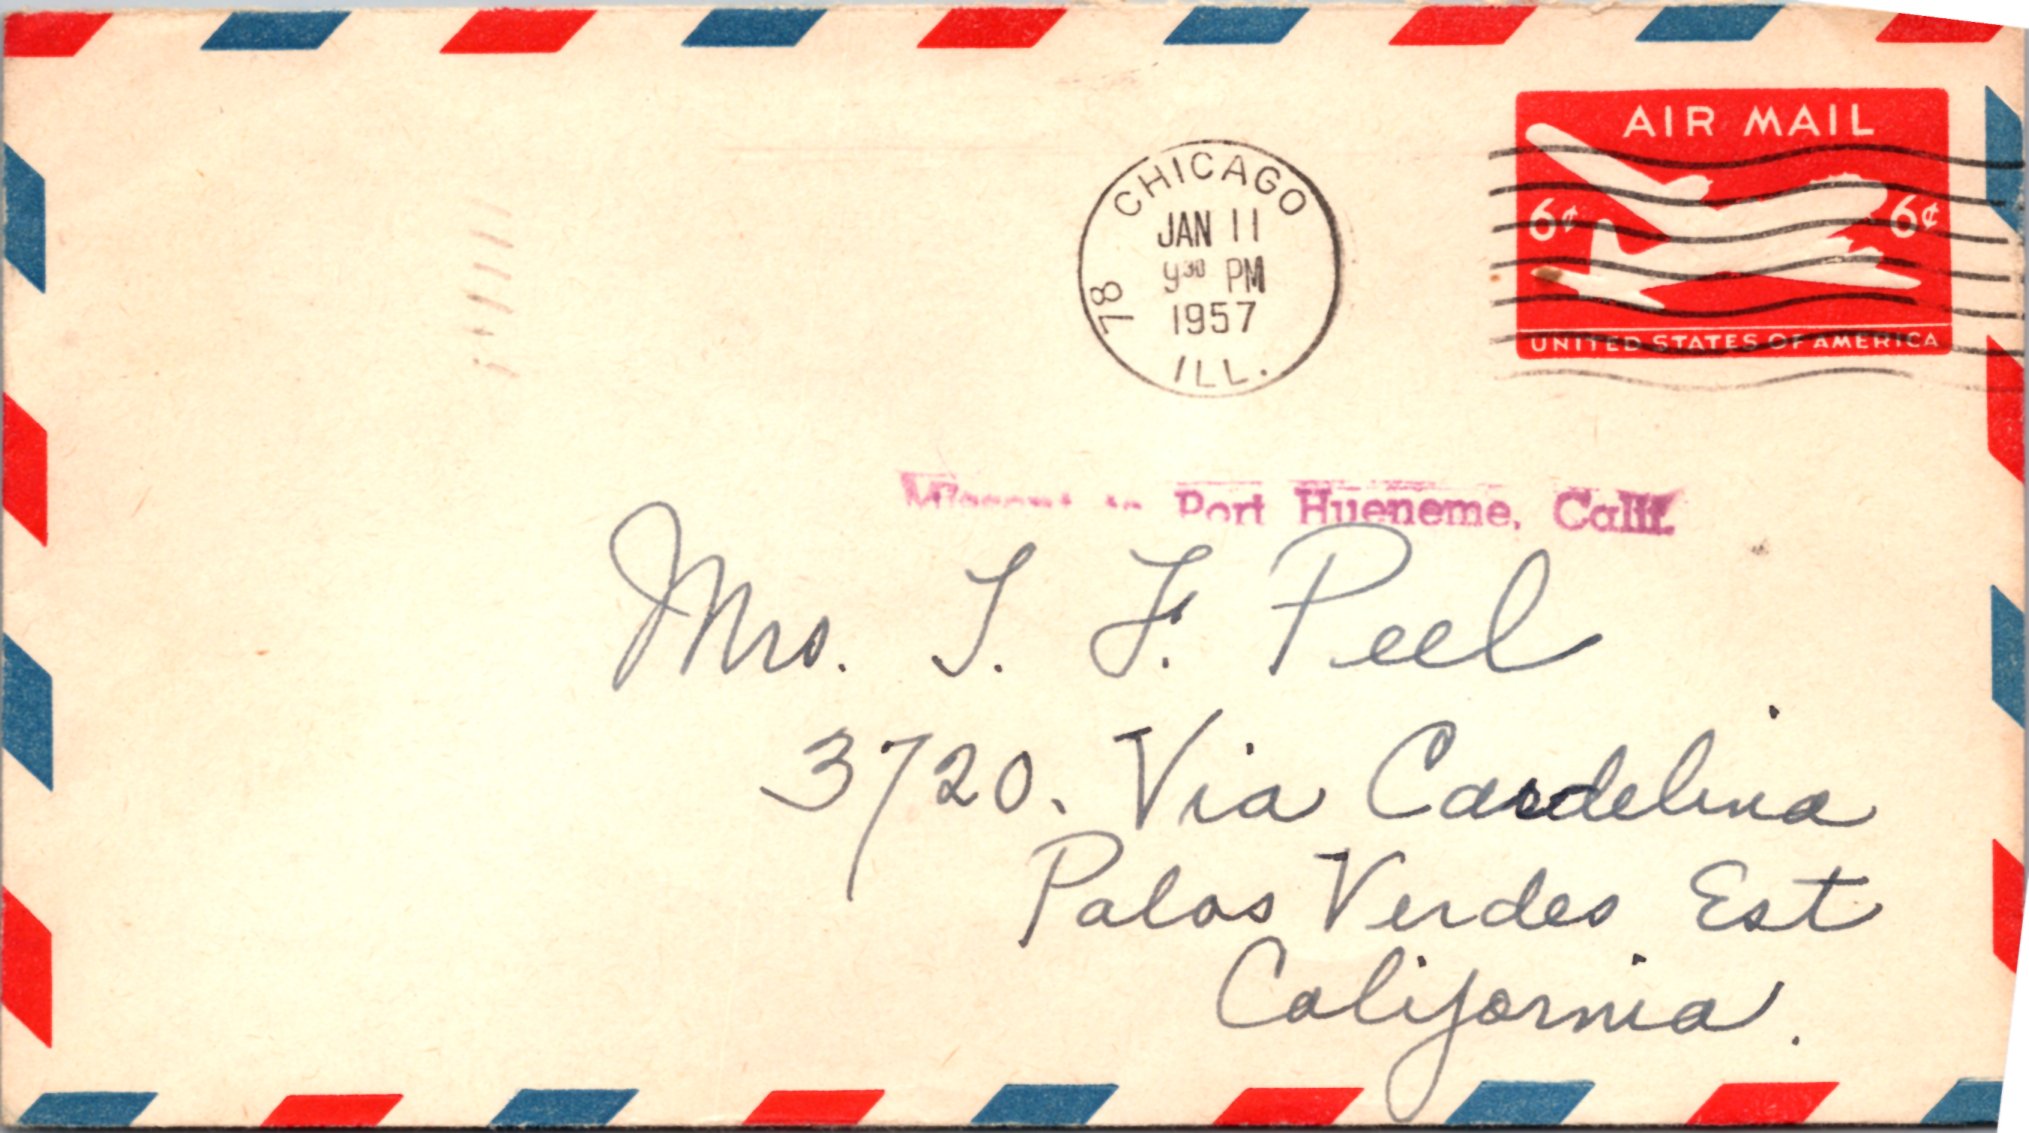 AIR MAIL
6¢ 6¢
UNITED STATES OF AMERICA
CHICAGO
JAN 11
9 30 PM
1957
ILL.
78
Missent to Port Hueneme, Calif.
Mrs. T. F. Peel
3720. Via Cardelina
Palos Verdes Est
California.